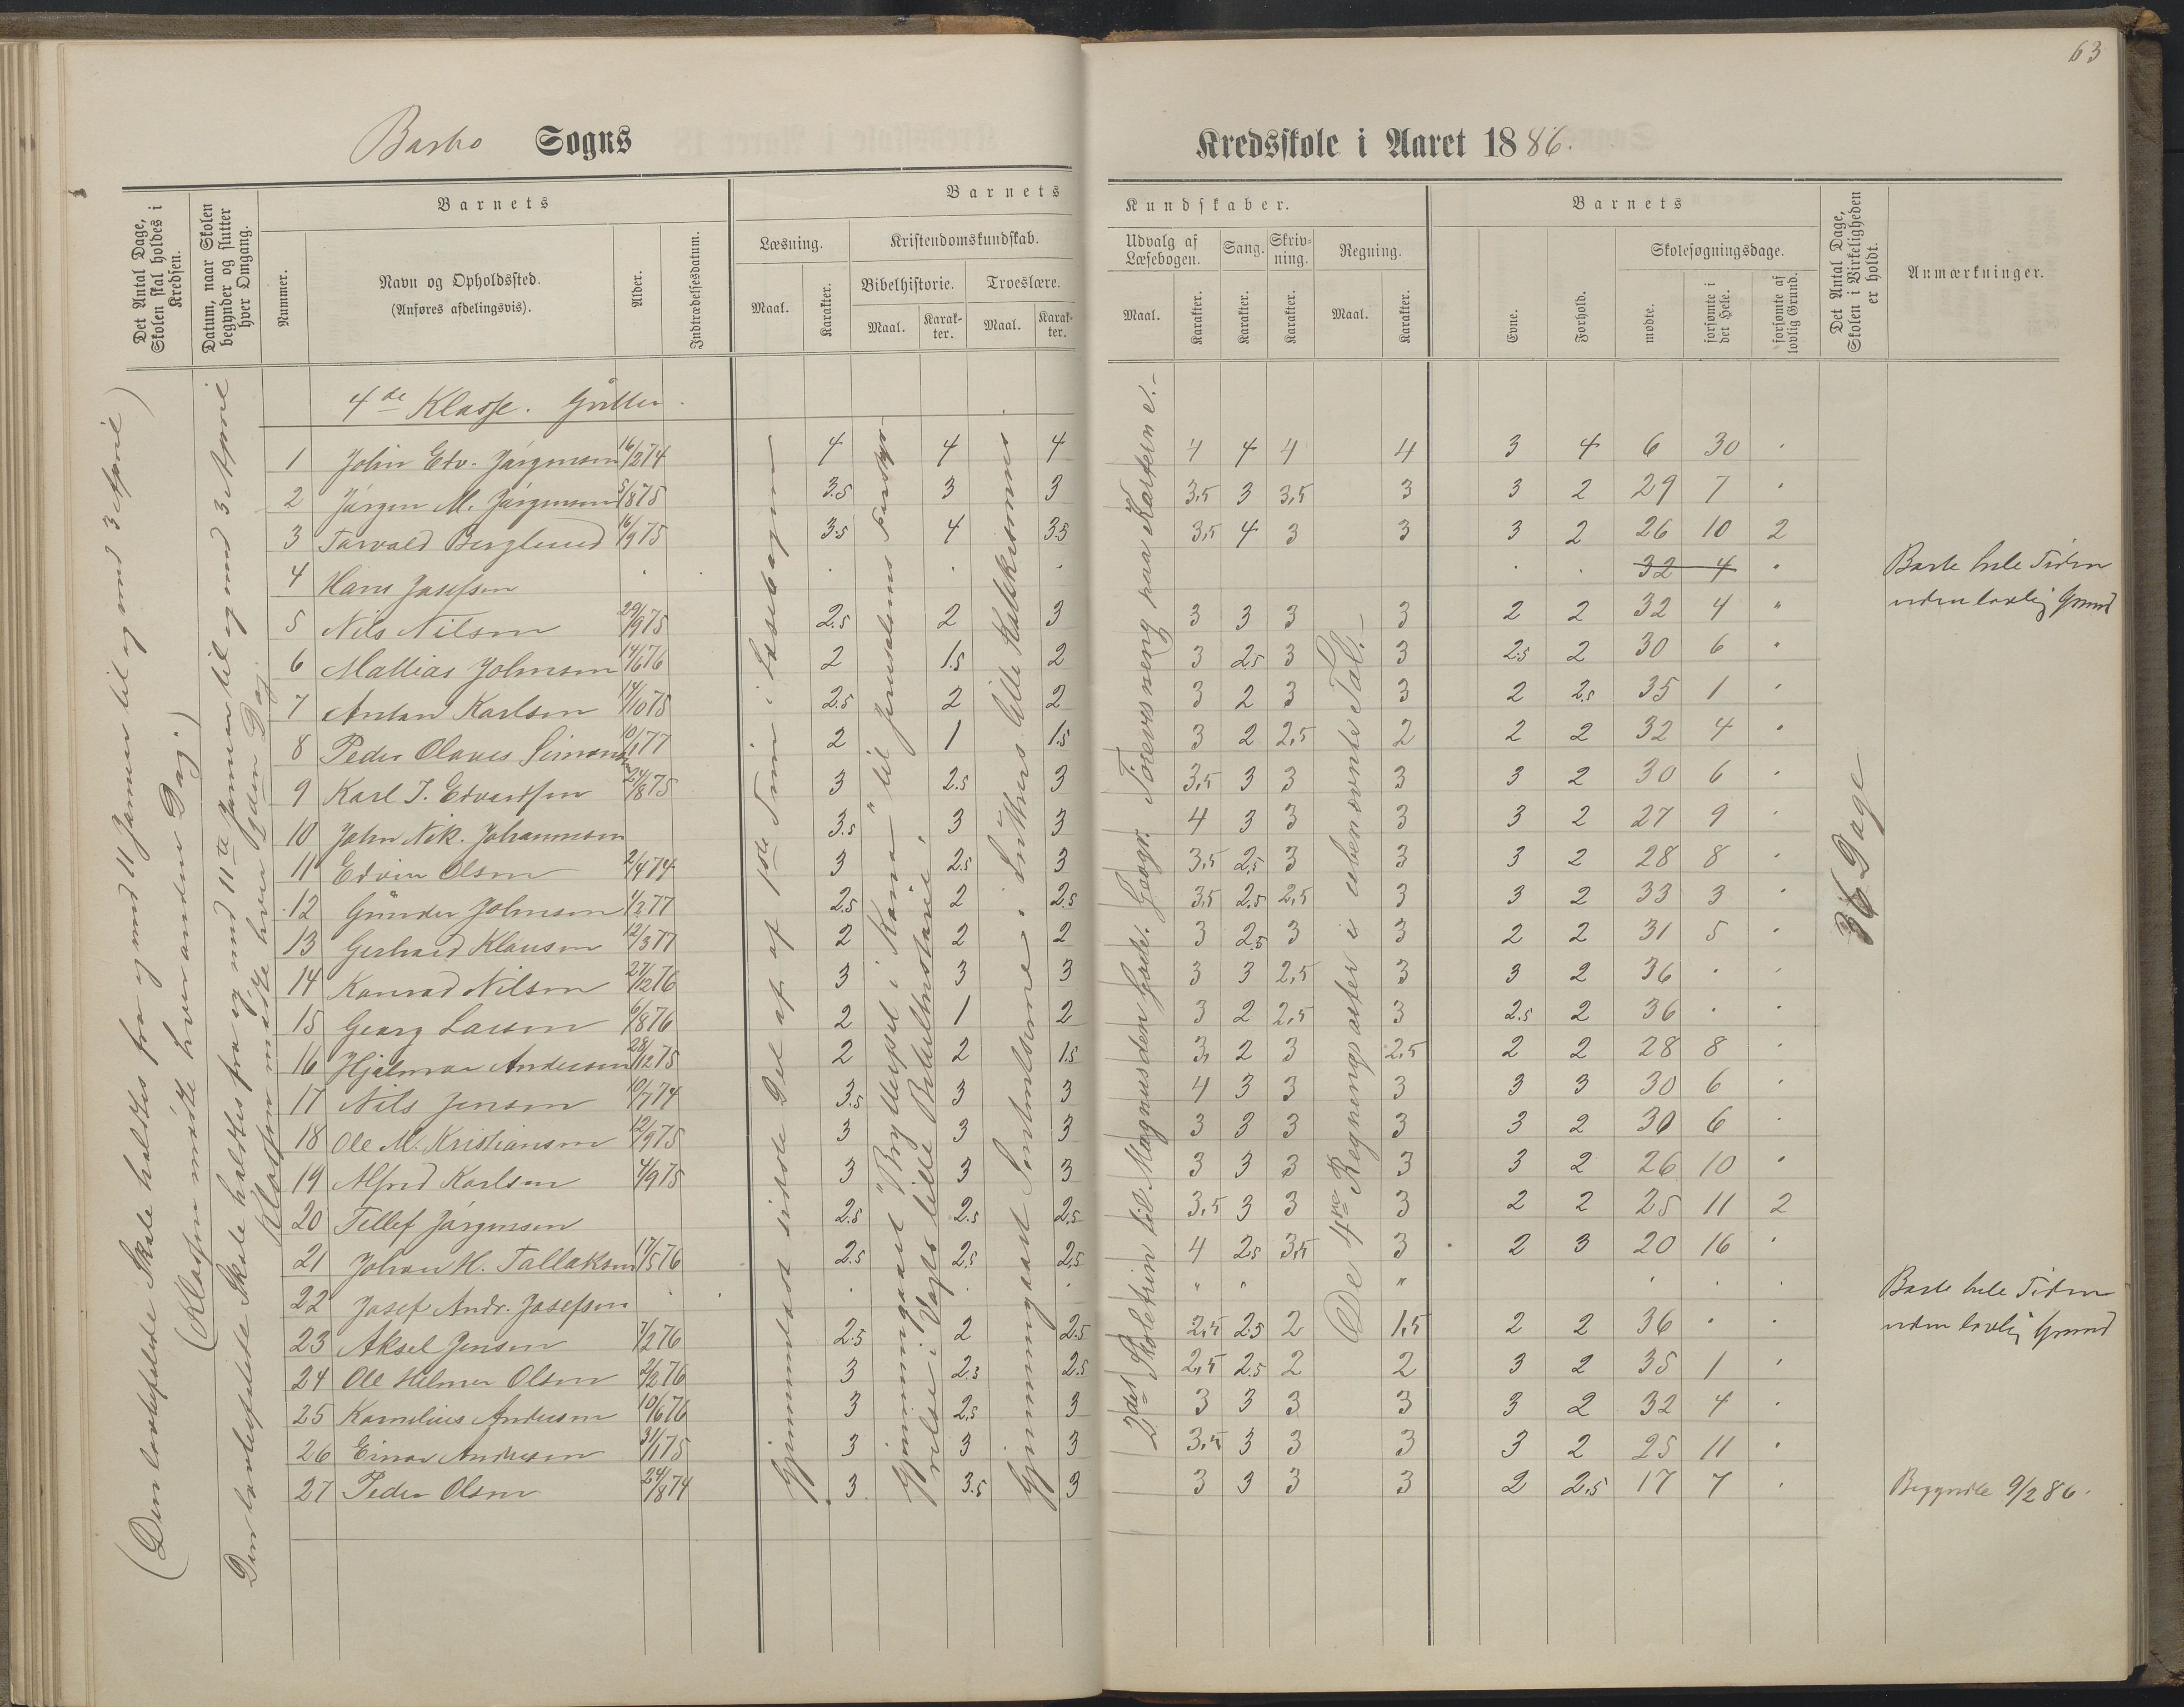 63
Barbo Sogns
Kredsskole i Aaret 1886.
Det Antal Dage, Skolen skal holdes i Kredsen.
Datum, naar Skolen begynder og slutter hver Omgang.
Barnets
Nummer.
Navn og Opholdssted.
(Anføres afdelingsvis).
Alder.
Indtrædelsesdatum.
Barnets
Læsning.
Maal.
Karakter.
Kristendomskundskab.
Bibelhistorie.
Maal.
Karakter.
Troeslære.
Maal.
Karakter.
Kundskaber.
Udvalg af Læsebogen.
Maal.
Karakter.
Sang.
Karakter.
Skrivning.
Karakter.
Regning.
Maal.
Karakter.
Barnets
Evne.
Forhold.
Skolesøgningsdage.
mødte.
forsømte i det Hele.
forsømte af lovlig Grund.
Det Antal Dage, Skolen i Virkeligheden er holdt.
Anmærkninger.
(Den lovbefalede Skole holdtes fra og med 11 Januar til og med 3 April)
(Klassen mødte hveranden Dag.)
Den lovbefalede Skole holdtes fra og med 11te Januar til og med 3 April
Klassen mødte hver anden Dag.
4de Klasse. Gutter.
Gjennemlæst sidste Del af 1ste Trin i Læsebogen
Gjennemgaaet "Bryllupset i Kana" til Jerusalems
i Vogts lille Bibelhistorie.
Gjennemgaaet Sententserne i Luthers lille Katekismus
2det Skoletrin til Magnus den Gode. Geogr. Forevisning paa Kartern e.
De 4re Regningsarter i ubenævnte Tal.
36 Dage
1 John Edv. Jørgensen 16/2 74 4 4 4 4 4 4 4 3 4 6 30 .
2 Jørgen M. Jørgensen 5/8 75 3.5 3 3 3,5 3 3,5 3 3 2 29 7 "
3 Torvald Berglund 16/9 75 3.5 4 3.5 3,5 4 3 3 3 2 26 10 2
4 Hans Josefsen . . . . . . . 32 4 " Borte hele Tiden
5 Nils Nilsen 29/9 75 2.5 2 3 3 3 3 3 2 2 32 4 " uden lovlig Grund
6 Mathias Johnsen 14/6 76 2 1.5 2 3 2.5 3 3 2.5 2 30 6 "
7 Anton Karlsen 14/10 75 2.5 2 2 3 2 3 3 2 2.5 35 1 .
8 Peder Olaves Simonsen 10/1 77 2 1 1.5 3 2 2,5 2 2 2 32 4 "
9 Karl J. Edvardsen 24/8 75 3 2.5 3 3,5 3 3 3 3 2 30 6 .
10 John Nik. Johannesen 3.5 3 3 4 3 3 3 3 2 27 9 .
11 Edvin Olsen 2/4 74 3 2.5 3 3,5 2,5 3 3 3 2 28 8 .
12 Gunder Johnsen 1/2 77 2.5 2 2.5 3,5 2.5 2,5 3 3 2 33 3 .
13 Gerhard Klausen 12/3 77 2 2 2 3 2.5 3 3 2 2 31 5 .
14 Konrad Nilsen 27/12 76 3 3 3 3 3 2,5 3 3 2 36 . .
15 Georg Larsen 6/8 76 2 1 2 3 2 2,5 3 2.5 2 36 . .
16 Hjalmar Andersen 28/12 75 2 2 1.5 3, 2 3 2,5 2 2 28 8 .
17 Nils Jensen 10/7 74 3.5 3 3 4 3 3 3 3 3 30 6 .
18 Ole M. Kristiansen 12/9 75 3 3 3 3 3 3 3 3 2 30 6 .
19 Alfred Karlsen 4/9 75 3 3 3 3 3 3 3 3 2 26 10 "
20 Tellef Jørgensen 2.5 2.5 2.5 3,5 3 3 3 2 2 25 11 2
21 Johan H. Tallaksen 17/5 76 2.5 2.5 2.5 4 2.5 3,5 3 2 3 20 16 .
22 Josef Andr. Josefsen . . . . " " " . . . Borte hele Tiden
23 Aksel Jensen 7/2 76 2.5 2 2.5 2,5 2.5 2 1,5 2 2 36 . . uden lovlig Grund
24 Ole Helmer Olsen 2/2 76 3 2.5 2.5 2,5 2.5 2 2 3 2 35 1 .
25 Kornelius Andersen 10/6 76 3 2.5 3 3 3 3 3 3 2 32 4 .
26 Einar Andresen 31/1 75 3 3 3 3,5 3 3 3 3 2 25 11 "
27 Peder Olsen 24/8 74 3 3.5 3 3 3 3 3 2 2.5 17 7 . Begyndte 9/2 86.